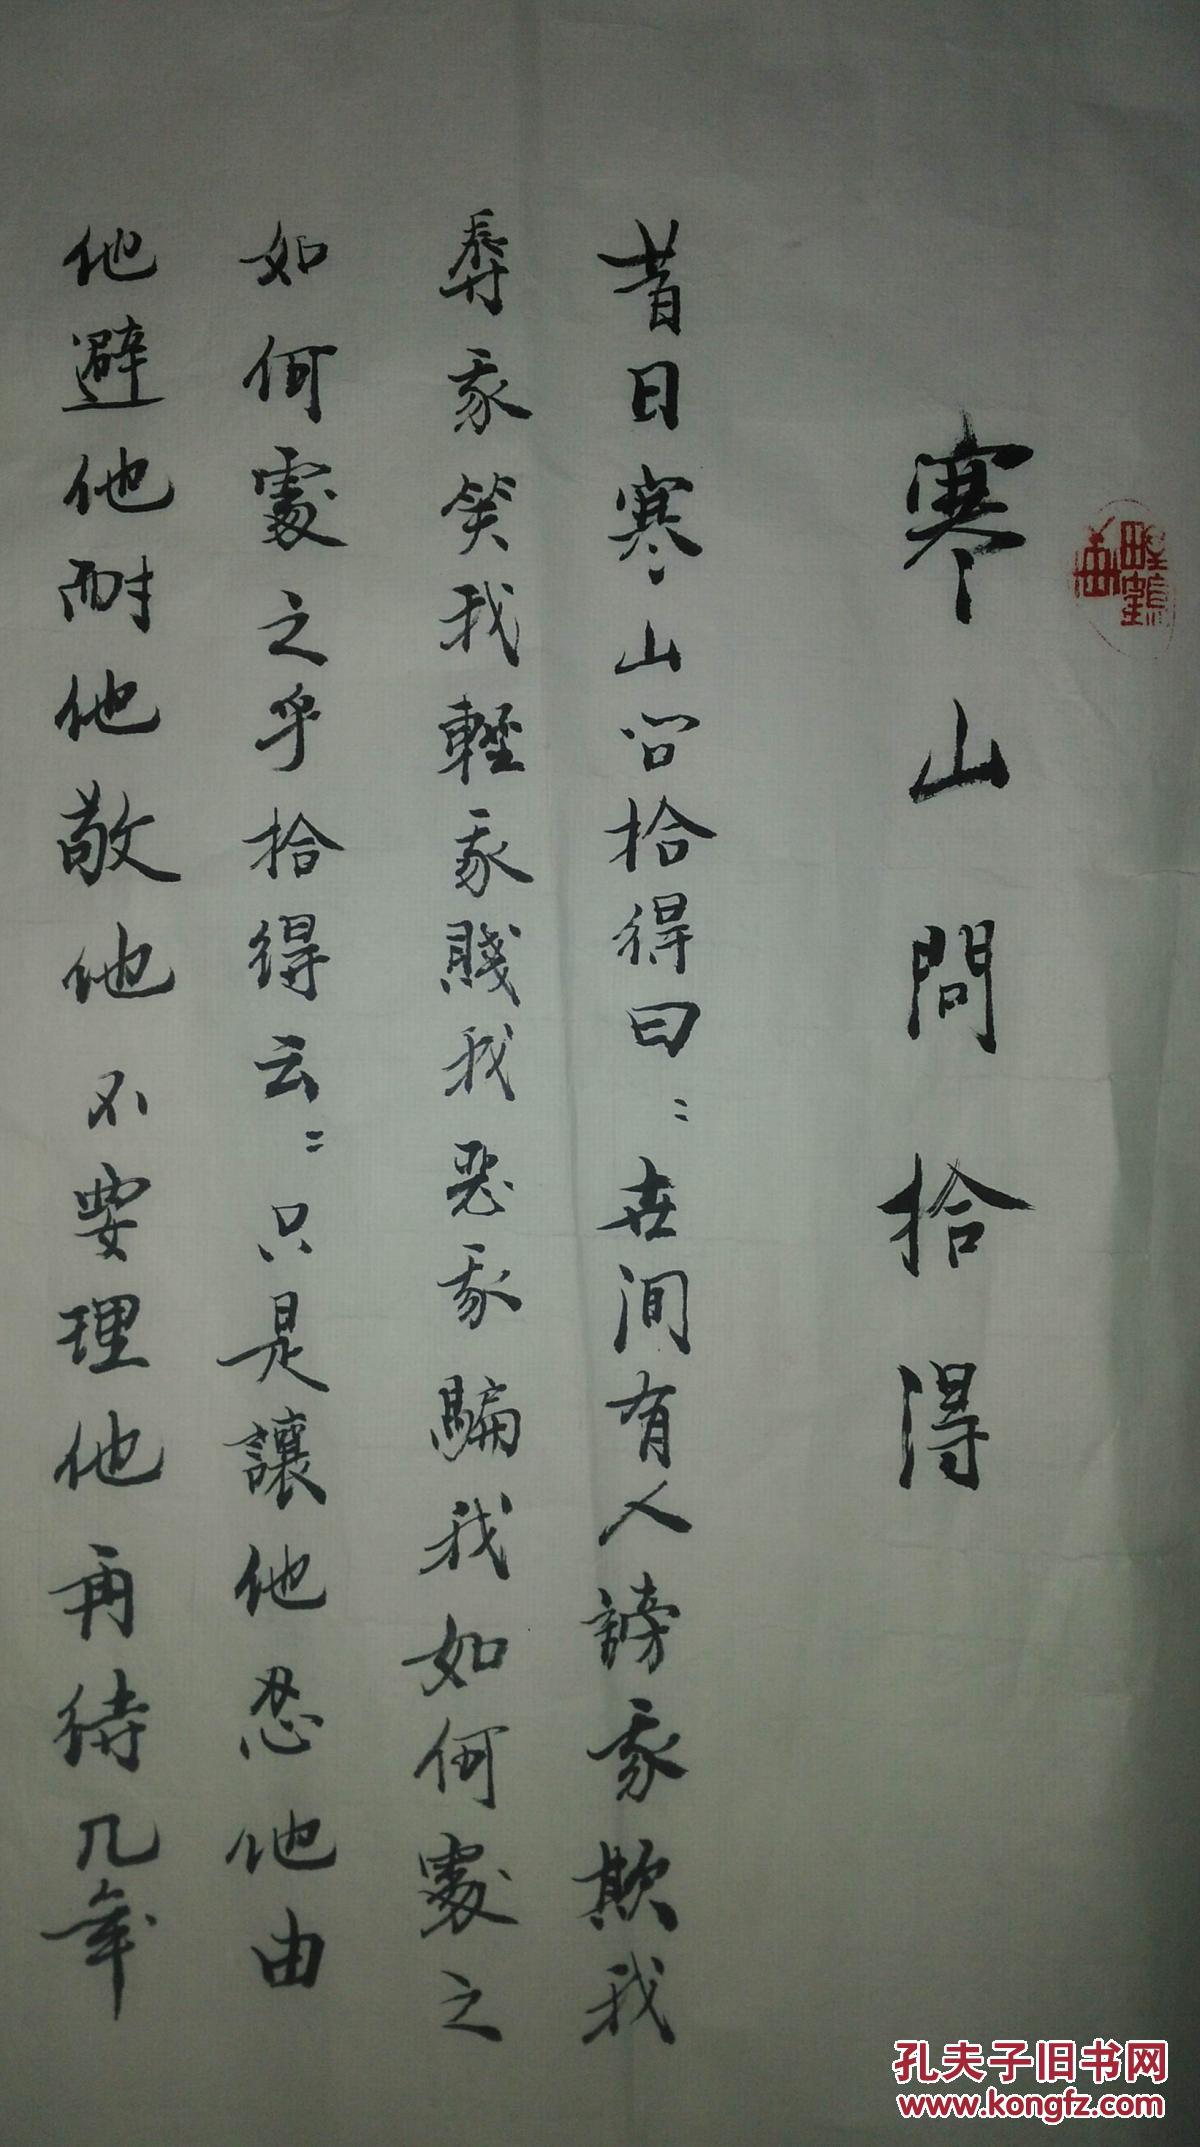 寒山問拾得
昔日寒山问拾得曰：世间有人謗我欺我
辱我笑我輕我賤我惡我騙我如何處之
如何處之乎拾得云：只是讓他忍他由
他避他耐他敬他不要理他再待几年
孔夫子旧书网
www.kongfz.com